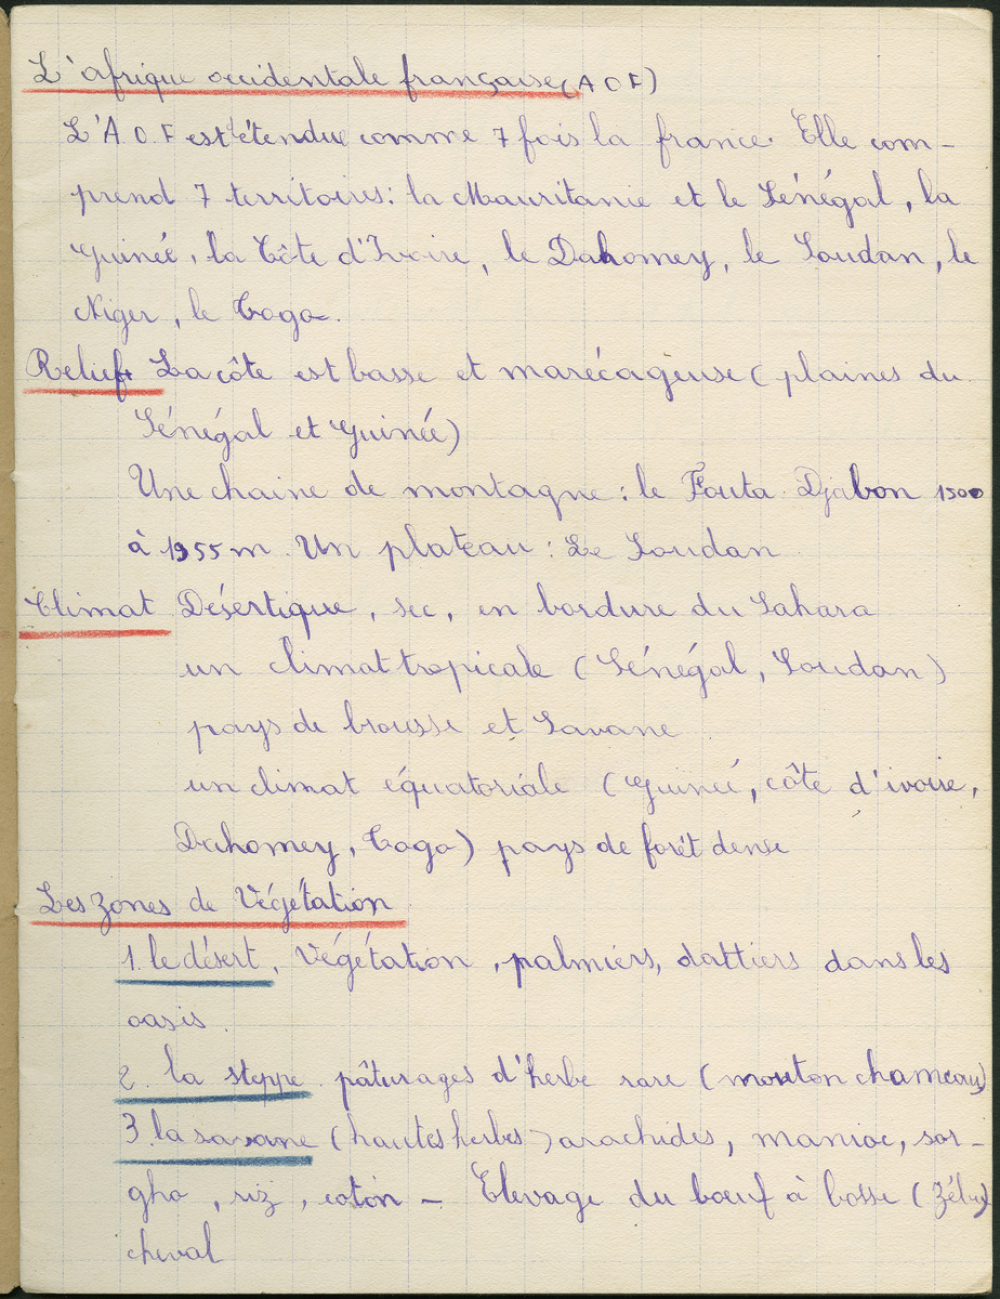 L'afrique occidentale française (A O F)
L'A O F est étendue comme 7 fois la france. Elle com-
prend 7 territoires : la Mauritanie et le Sénégal, la
guinée, la Côte d'Ivoire, le Dahomey, le Soudan, le
Niger, le Togo.
Relief La côte est basse et marécageuse ( plaines du
Sénégal et guinée)
Une chaine de montagne : le Fouta Djabon 1500
à 1955 m. Un plateau : Le Soudan
Climat Désertique, sec, en bordure du Sahara
un climat tropicale (Sénégal, Soudan)
pays de brousse et Savane
un climat équatoriale (guineé, côte d'ivoire,
Dahomey, Togo) pays de forêt dense
Les zones de Végétation
1. le désert. Végétation, palmiers, dattiers dans les
oasis.
2. la steppe pâturages d'herbe rare (mouton chameau)
3. la savane (hautes herbes) arachides, manioc, sor-
gho, riz, coton - Elevage du bœuf à bosse (Zébu)
cheval